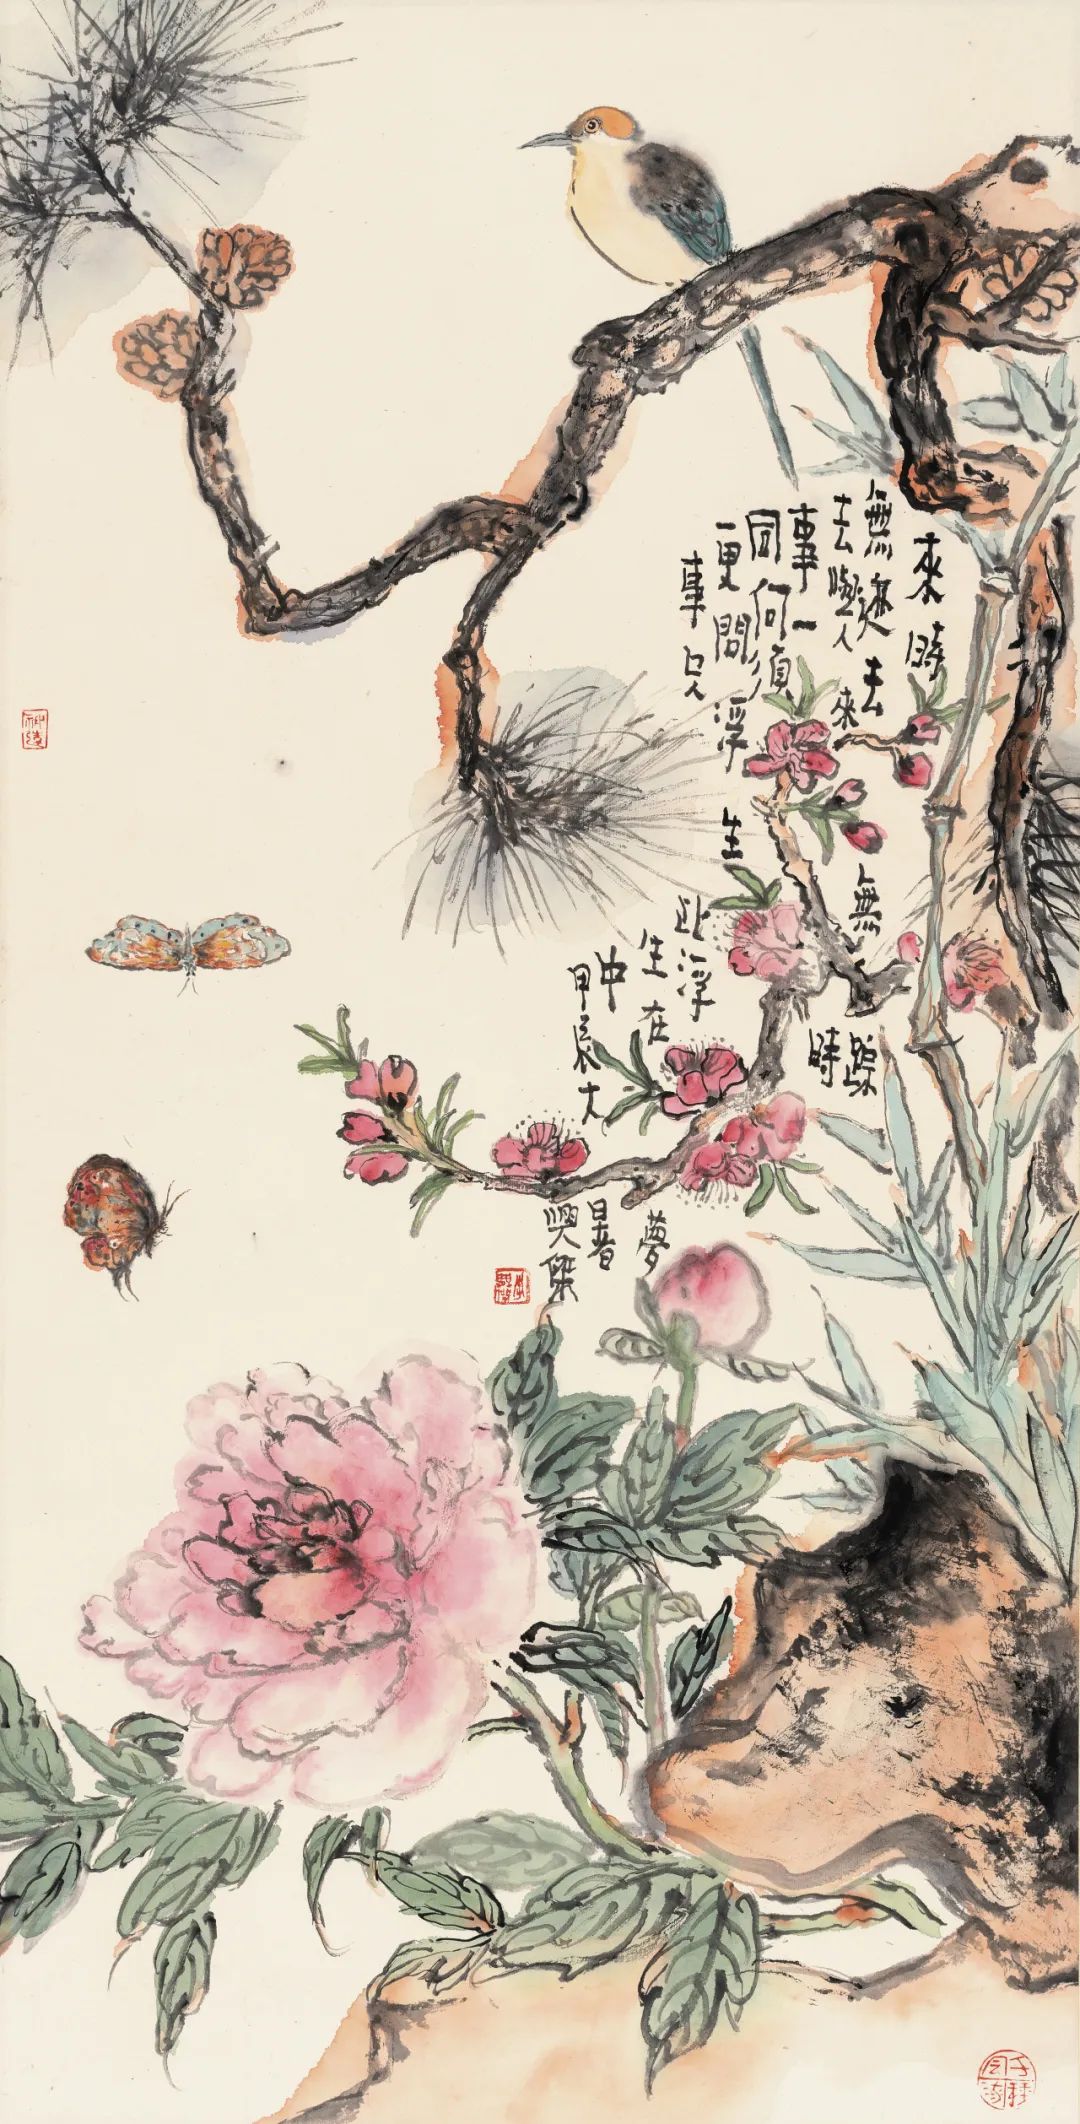 來時
無迹去無踪
去與來時
事一
同何須
更問浮生
事只此浮
生在夢
中
甲辰大暑
興傑